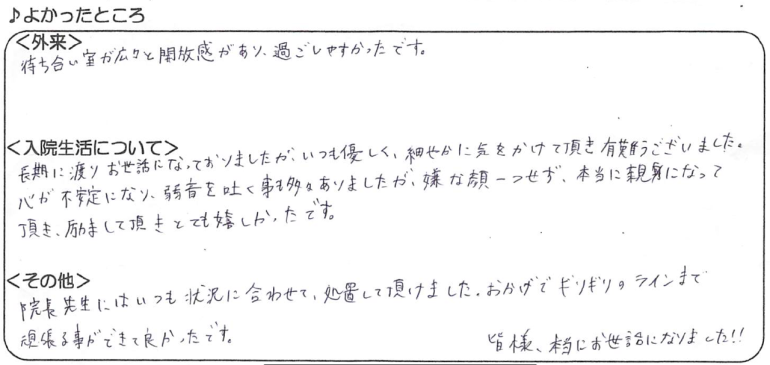 ♪よかったところ
＜外来＞
待ち合い室が広々と開放感があり、過ごしやすかったです。
＜入院生活について＞
長期に渡りお世話になっておりましたが、いつも優しく、細やかに気をかけて頂き有難うございました。
心が不安定になり、弱音を吐く事も多々ありましたが、嫌な顔一つせず、本当に親身になって
頂き、励まして頂きとても嬉しかったです。
＜その他＞
院長先生にはいつも状況に合わせて、処置して頂けました。おかげでギリギリのラインまで
頑張る事ができて良かったです。
皆様、本当にお世話になりました!!